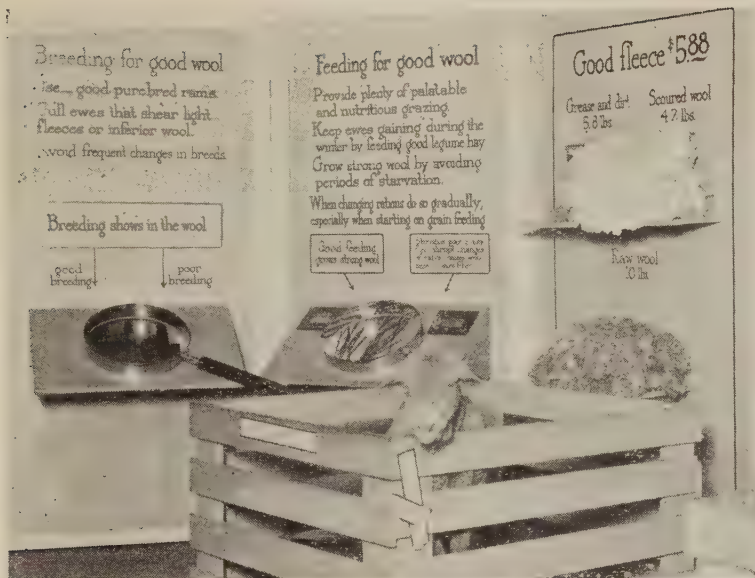 Breeding for good wool
Use good purebred rams.
Cull ewes that shear light
fleeces or inferior wool.
Avoid frequent changes in breeds.
Breeding shows in the wool
good
breeding
poor
breeding
Feeding for good wool
Provide plenty of palatable
and nutritious grazing.
Keep ewes gaining during the
winter by feeding good legume hay
Grow strong wool by avoiding
periods of starvation.
When changing rations do so gradually,
especially when starting on grain feeding
Good feeding
grows strong wool
Good fleece $5.88
Grease and dirt
5.8 lbs.
Scoured wool
4.2 lbs.
Raw wool
10 lbs.